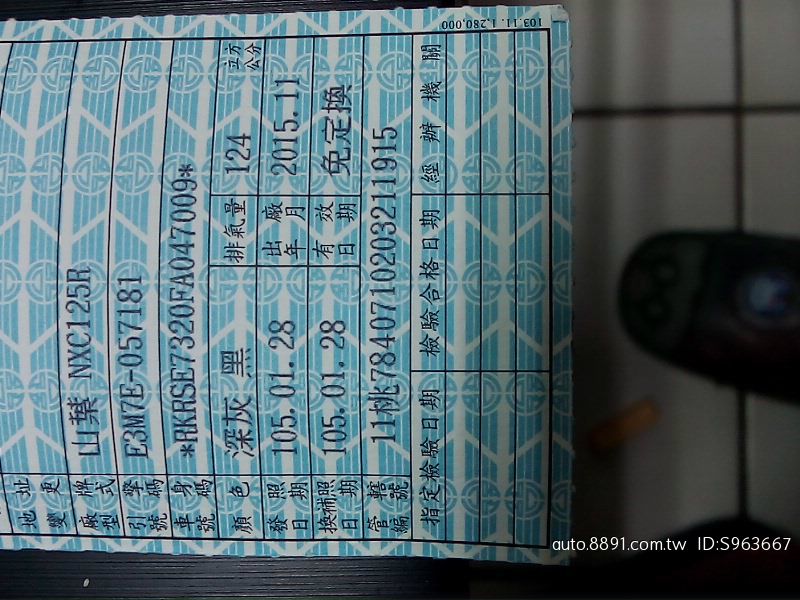 地址變更
廠牌型式 山葉 NXC125R
引擎號碼 E3M7E-057181
車身號碼 *RKRSE7320FA047009*
顏色 深灰 黑 排氣量 124 立方公分
發照日期 105.01.28 出廠年月 2015.11
換補照日期 105.01.28 有效日期 免定換
管轄編號 11桃784071020321 1915
指定檢驗日期 檢驗合格日期 經辦機關
103.11.1,280,000
auto.8891.com.tw ID:S963667